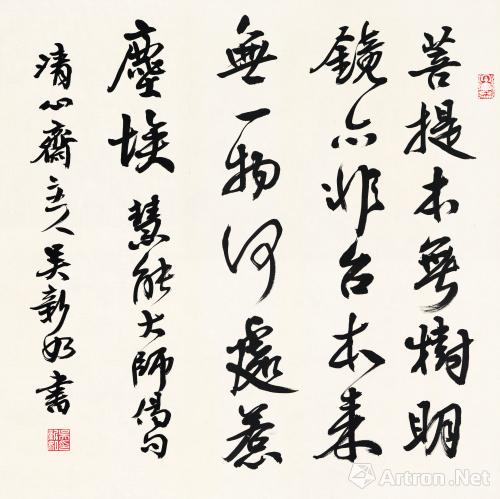 菩提本無樹明
鏡亦非台本来
無一物何處惹
塵埃 慧能大師偈句
清心齋主人吴新書
Artron.Net